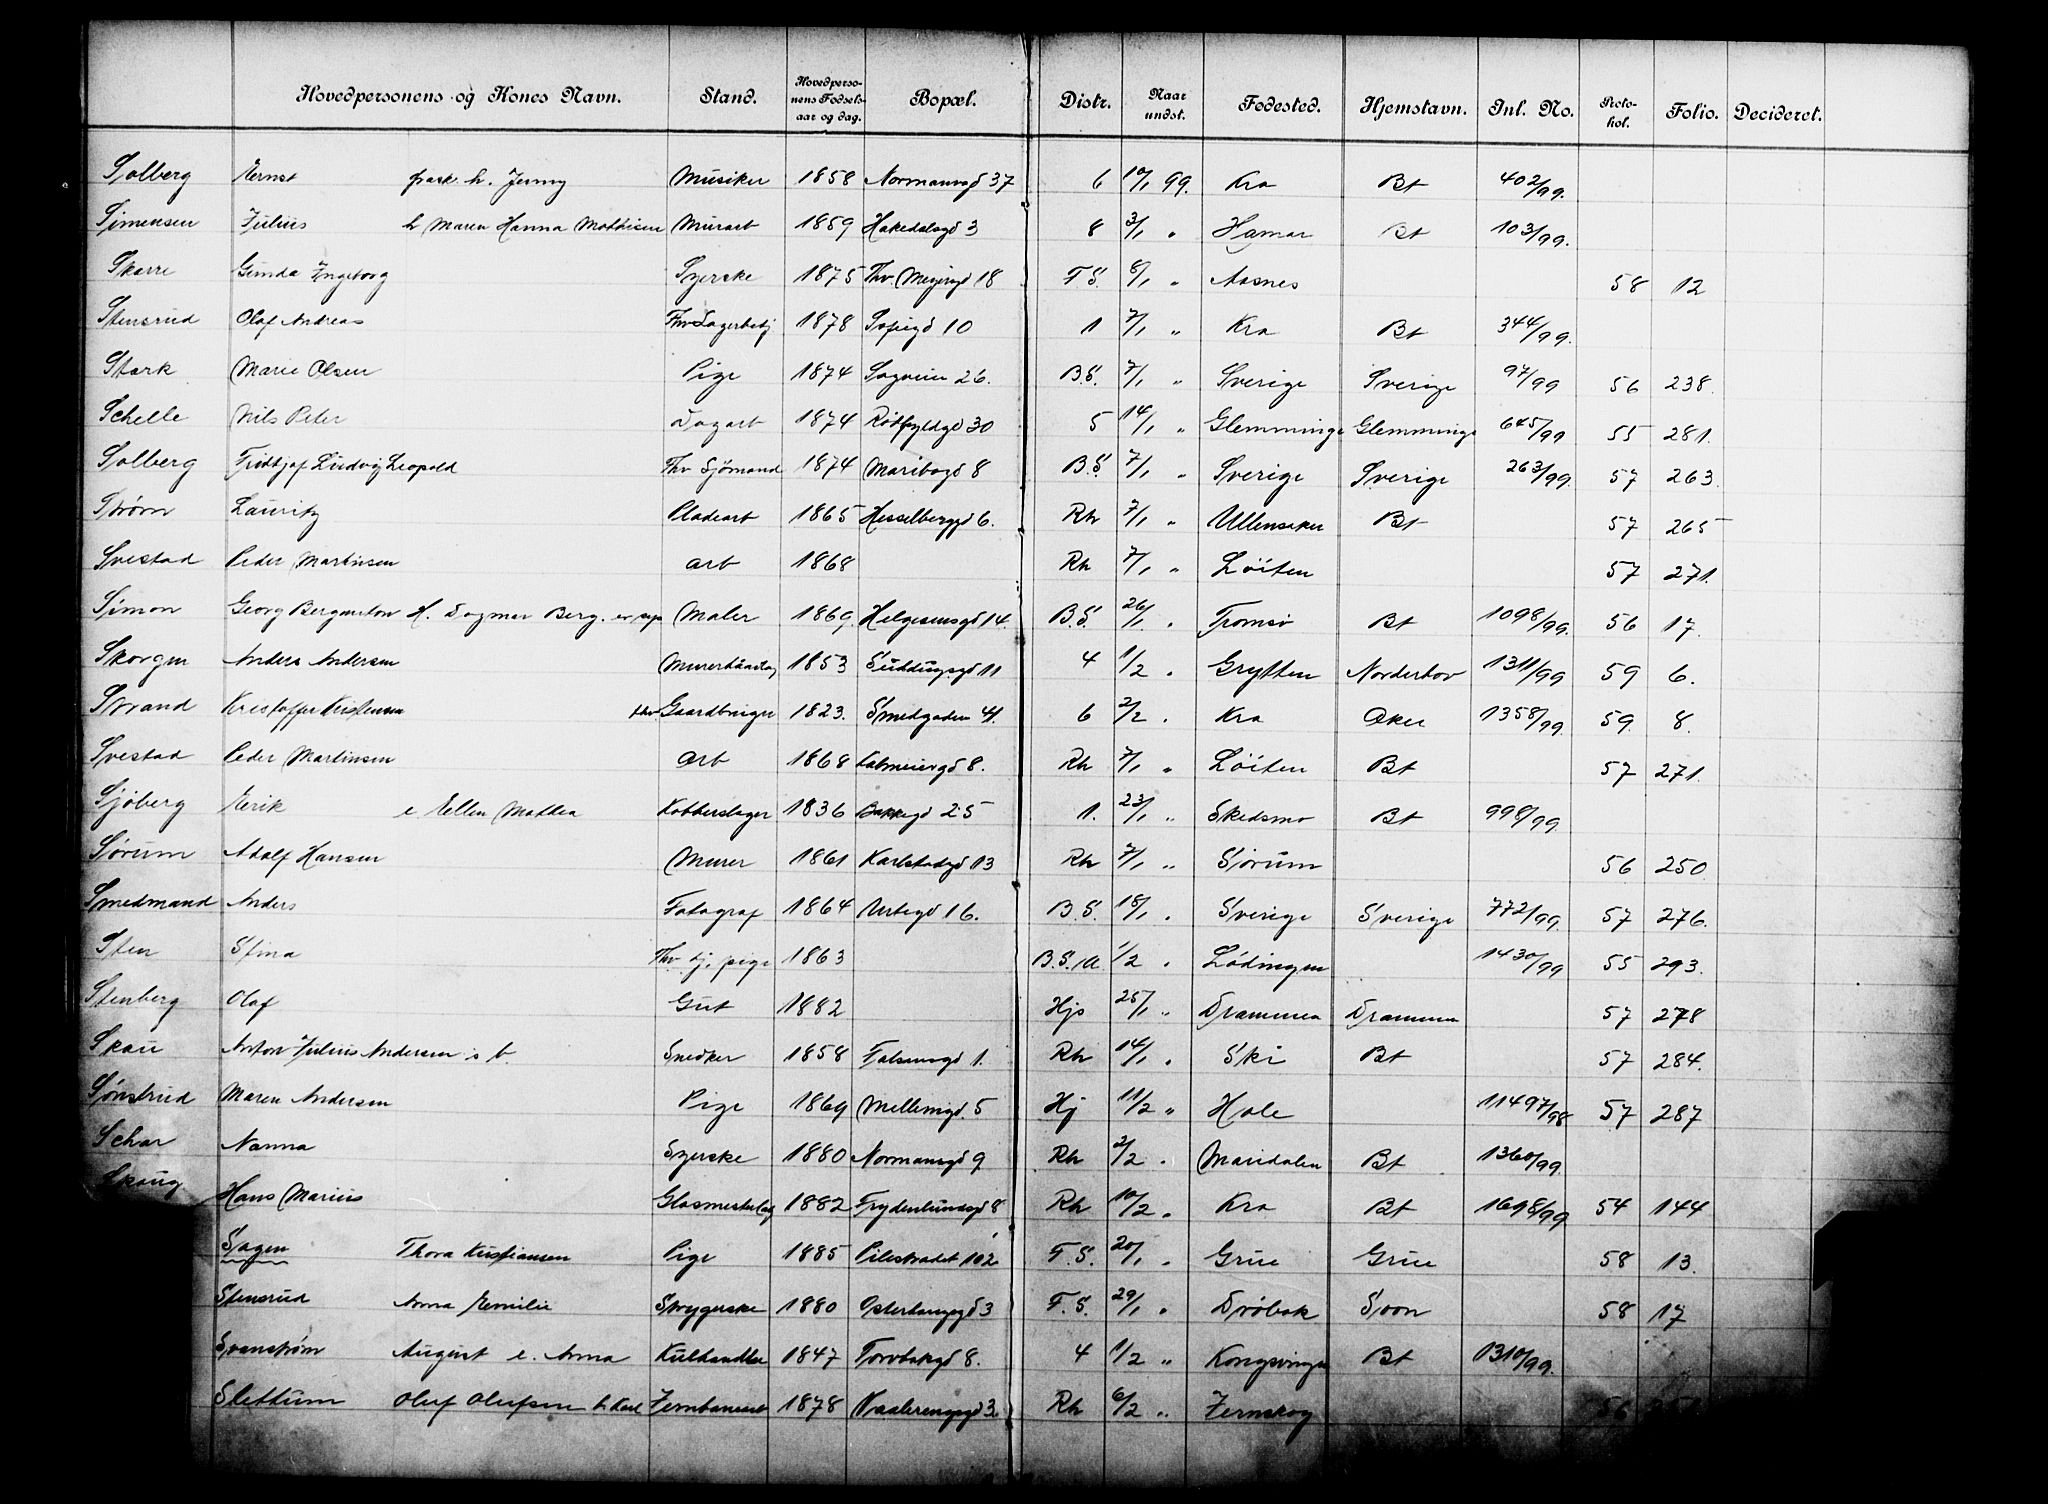 Hovedpersonens og Kones Navn. Stand. Hovedperso-nens Fødsels-aar og dag. Bopæl. Distr. Naar undst. Fødested. Hjemstavn. Jnl. No. Proto-kol. Folio. Decideret.
Solberg Ernst frask. h. Jenny Musiker 1858 Normannsgd 37 6 10/1 99. Kra Bt 402/99.
Simensen Julius h Maren Hanna Mathisen Murarb 1859 Hakedalsgd 3 8 3/1 " Hamar Bt 103/99.
Skarre Gunda Ingeborg Syerske 1875 Thv. Meyersgd 18 F S. 8/1 " Aasnes 58 12
Stensrud Olaf Andreas Fhv Lagerbetj 1878 Sofiegd 10 1 7/1 " Kra Bt 344/99.
Stark Marie Olsen Pige 1874 Sagveien 26. B.S. 7/1 " Sverige Sverige 97/99 56 238.
Schelle Nils Peter Dagarb 1874 Rødfyldgd 30 5 14/1 " Glemminge Glemminge 645/99 55 281.
Solberg Fridtjof Ludvig Leopold Fhv Sjömand 1874 Maribogd 8 B.S. 7/1 " Sverige Sverige 263/99. 57 263.
Strøm Lauritz Pladearb 1865 Hesselberggd 6. Rh 7/1 " Ullensaker Bt 57 265
Svestad Peder Martinsen arb 1868 Rh 7/1 " Löiten 57 271.
Simon Georg H. Dagmar Berg. er sep Maler 1869. Helgesensgd 14. B.S. 26/1 " Tromsø Bt 1098/99. 56 17.
Skorgen Anders Andersen 1853 Suddugsgd 11 4 1/2 " Grytten Norderhov 1311/99 59 6.
Strand Kristoffer Kristensen fhv Gaardbruger 1823. Smedgaden 41. 6 2/2 " Kra Aker 1358/99. 59. 8.
Svestad Peder Martinsen Arb 1868 8. Rh 7/1 " Löiten Bt 57 271.
Sjöberg Eerik e Ellen Mathea Kobberslager 1836 Bakkegd 25 1. 23/1 " Skedsmo Bt 998/99.
Sørum Adolf Hansen Murer 1861 Karlstadgd 13 Rh 7/1 " Sørum 56 250
Smedmand Anders Fotograf 1864 Urtegd 16. B.S. 18/1 " Sverige Sverige 772/99. 57 276.
Sten Stina Fhv tj. pige 1863 B.S.A. 1/2 " Lödingen 1430/99 55 293.
Stenberg Olaf Gut 1882 Hjs 25/1 " Drammen Drammen 57 278
Skau Anton Julius Andersen s. b. Snedker 1858 Falsensgd 1. Rh 14/1 " Ski Bt 57 284.
Sønstrud Maren Andersen Pige 1869 Møllerngd. 5 Hj 11/2 " Hole 11497/98 57 287
Schar Nanna Syerske 1880 Normansgd 9 Rh 2/2 " Maridalen Bt 1360/99.
Skaug Hans Marius 1882 Frydenlundsgd 8 Rh 10/2 " Kra Bt 1698/99 54 144
Sagen Thora Kristiansen Pige 1885 Pilestrædet 102 F. S. 20/1 " Grue Grue 58 13.
Stensrud Anna Emilie Strygerske 1880 Østerhausgd 3 F. S. 29/1 " Drøbak Soon 58 17
Svanstrøm August e. Anna Kulhandler 1847 Torvbakgd 8. 4 1/2 " Kongsvinger Bt 1310/99.
Slettum Oluf Olufsen 1878 Vaalerengsgd 3. Rh 6/2 " Jernskog 56